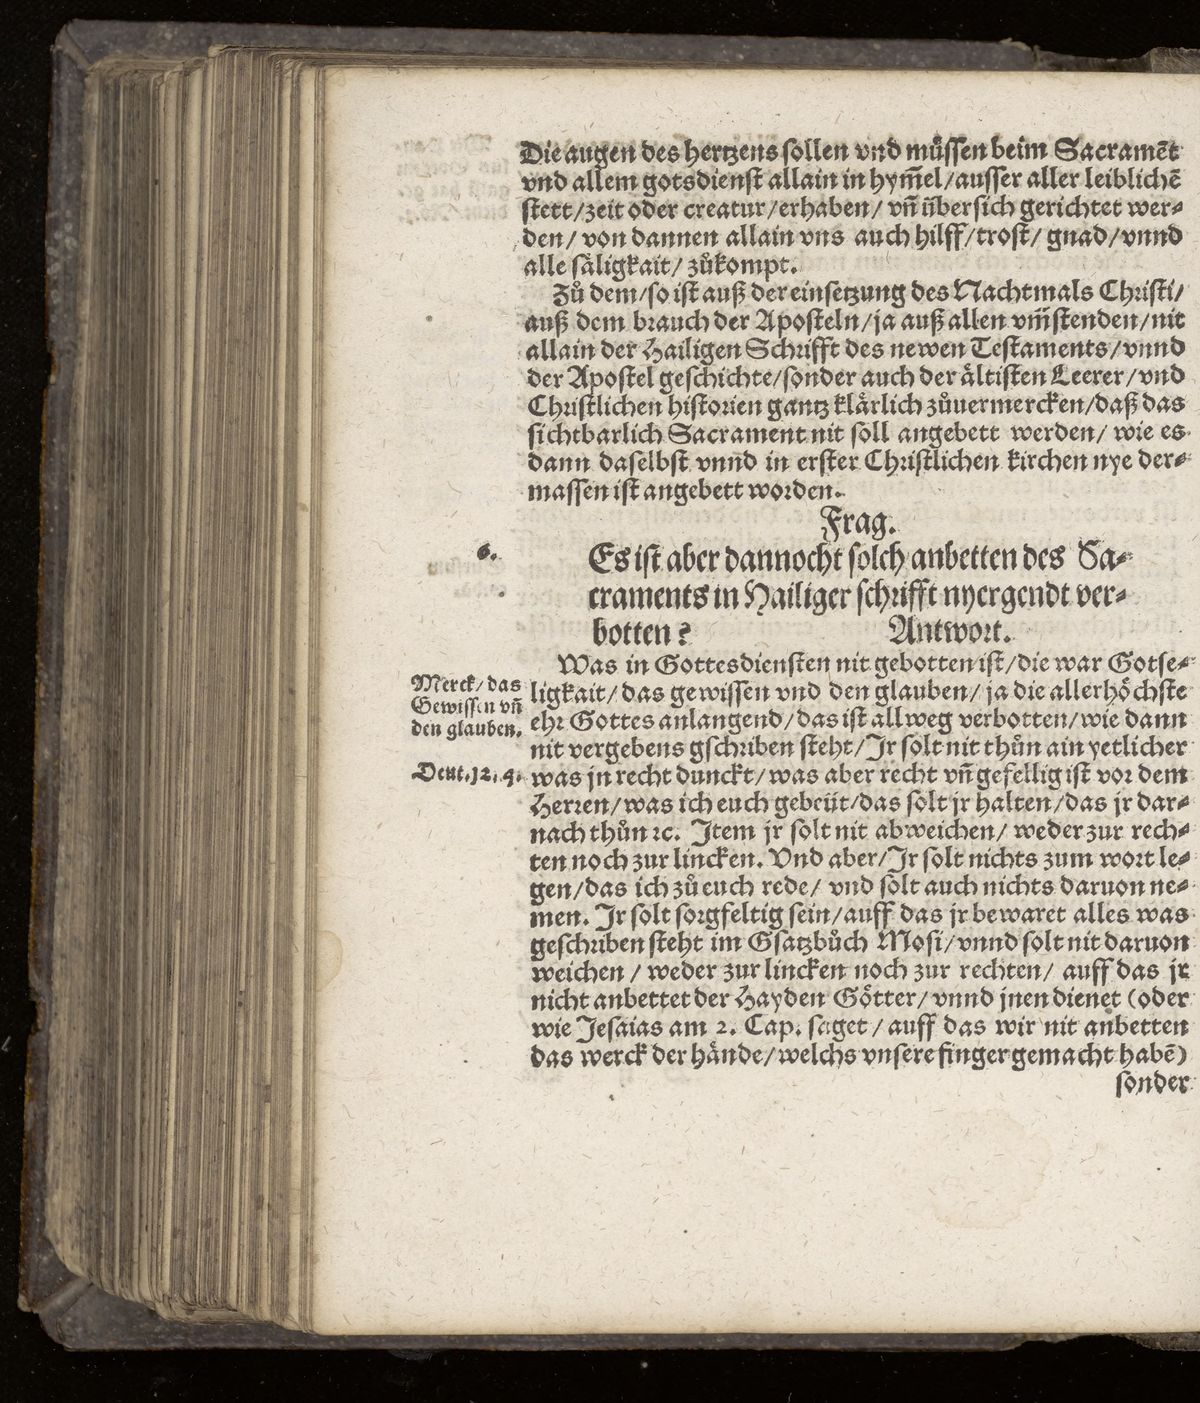 Die augen des hertzens sollen vnd müssen beim Sacramēt
vnd allem gotsdienst allain in hym̄el/ausser aller leiblichē
stett/zeit oder creatur/erhaben/ vn̄ übersich gerichtet wer⸗
den/ von dannen allain vns auch hilff/trost/ gnad/vnnd
alle säligkait/ zůkompt.
Zů dem/so ist auß der einsetzung des Nachtmals Christi/
auß dem brauch der Aposteln/ja auß allen vm̄stenden/nit
allain der Hailigen Schrifft des newen Testaments/vnnd
der Apostel geschichte/sonder auch der ältisten Leerer/vnd
Christlichen historien gantz klärlich zůuermercken/daß das
sichtbarlich Sacrament nit soll angebett werden/ wie es
dann daselbst vnnd in erster Christlichen kirchen nye der⸗
massen ist angebett worden.
Frag.
6.
Es ist aber dannocht solch anbetten des Sa⸗
craments in Hailiger schrifft nyergendt ver⸗
botten? Antwort.
Was in Gottesdiensten nit gebotten ist/die war Gotse⸗
Merck/das
Gewissen vn̄
den glauben.
ligkait/das gewissen vnd den glauben/ ja die allerhöchste
ehr Gottes anlangend/das ist allweg verbotten/wie dann
nit vergebens gschriben steht/Jr solt nit thůn ain yetlicher
Deut.12.4.
was jn recht dunckt/was aber recht vn̄ gefellig ist vor dem
Herren/was ich euch gebeüt/das solt jr halten/das jr dar⸗
nach thůn ꝛc. Item jr solt nit abweichen/ weder zur rech⸗
ten noch zur lincken. Vnd aber/Jr solt nichts zum wort le⸗
gen/das ich zů euch rede/ vnd solt auch nichts daruon ne⸗
men. Jr solt sorgfeltig sein/auff das jr bewaret alles was
geschriben steht im Gsatzbůch Mosi/vnnd solt nit daruon
weichen / weder zur lincken noch zur rechten/ auff das jr
nicht anbettet der Hayden Götter/vnnd jnen dienet (oder
wie Jesaias am 2. Cap. saget / auff das wir nit anbetten
das werck der hände/welchs vnsere finger gemacht habē)
sonder